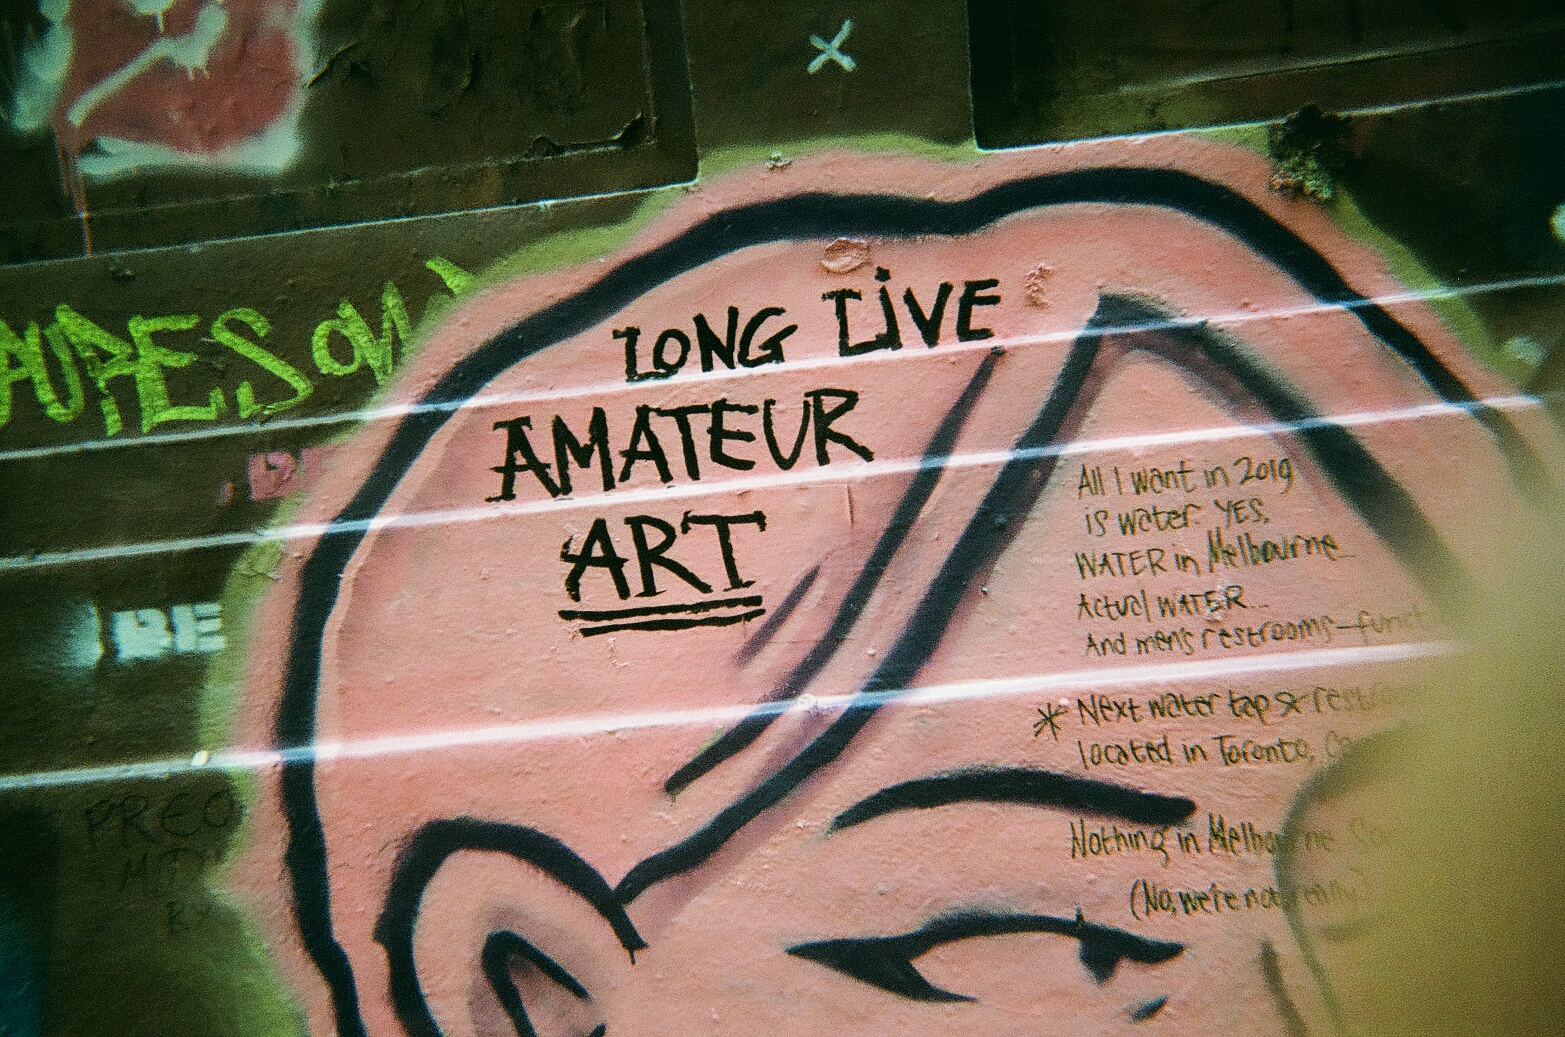 LONG LiVE
AMATEUR
ART
All I want in 2019
is water. YES,
WATER in Melbourne...
Actual WATER...
And men's restrooms—funct
* Next water tap &
located in Toronto,
Nothing in Melbourne
(No, we're not
BE
PREO